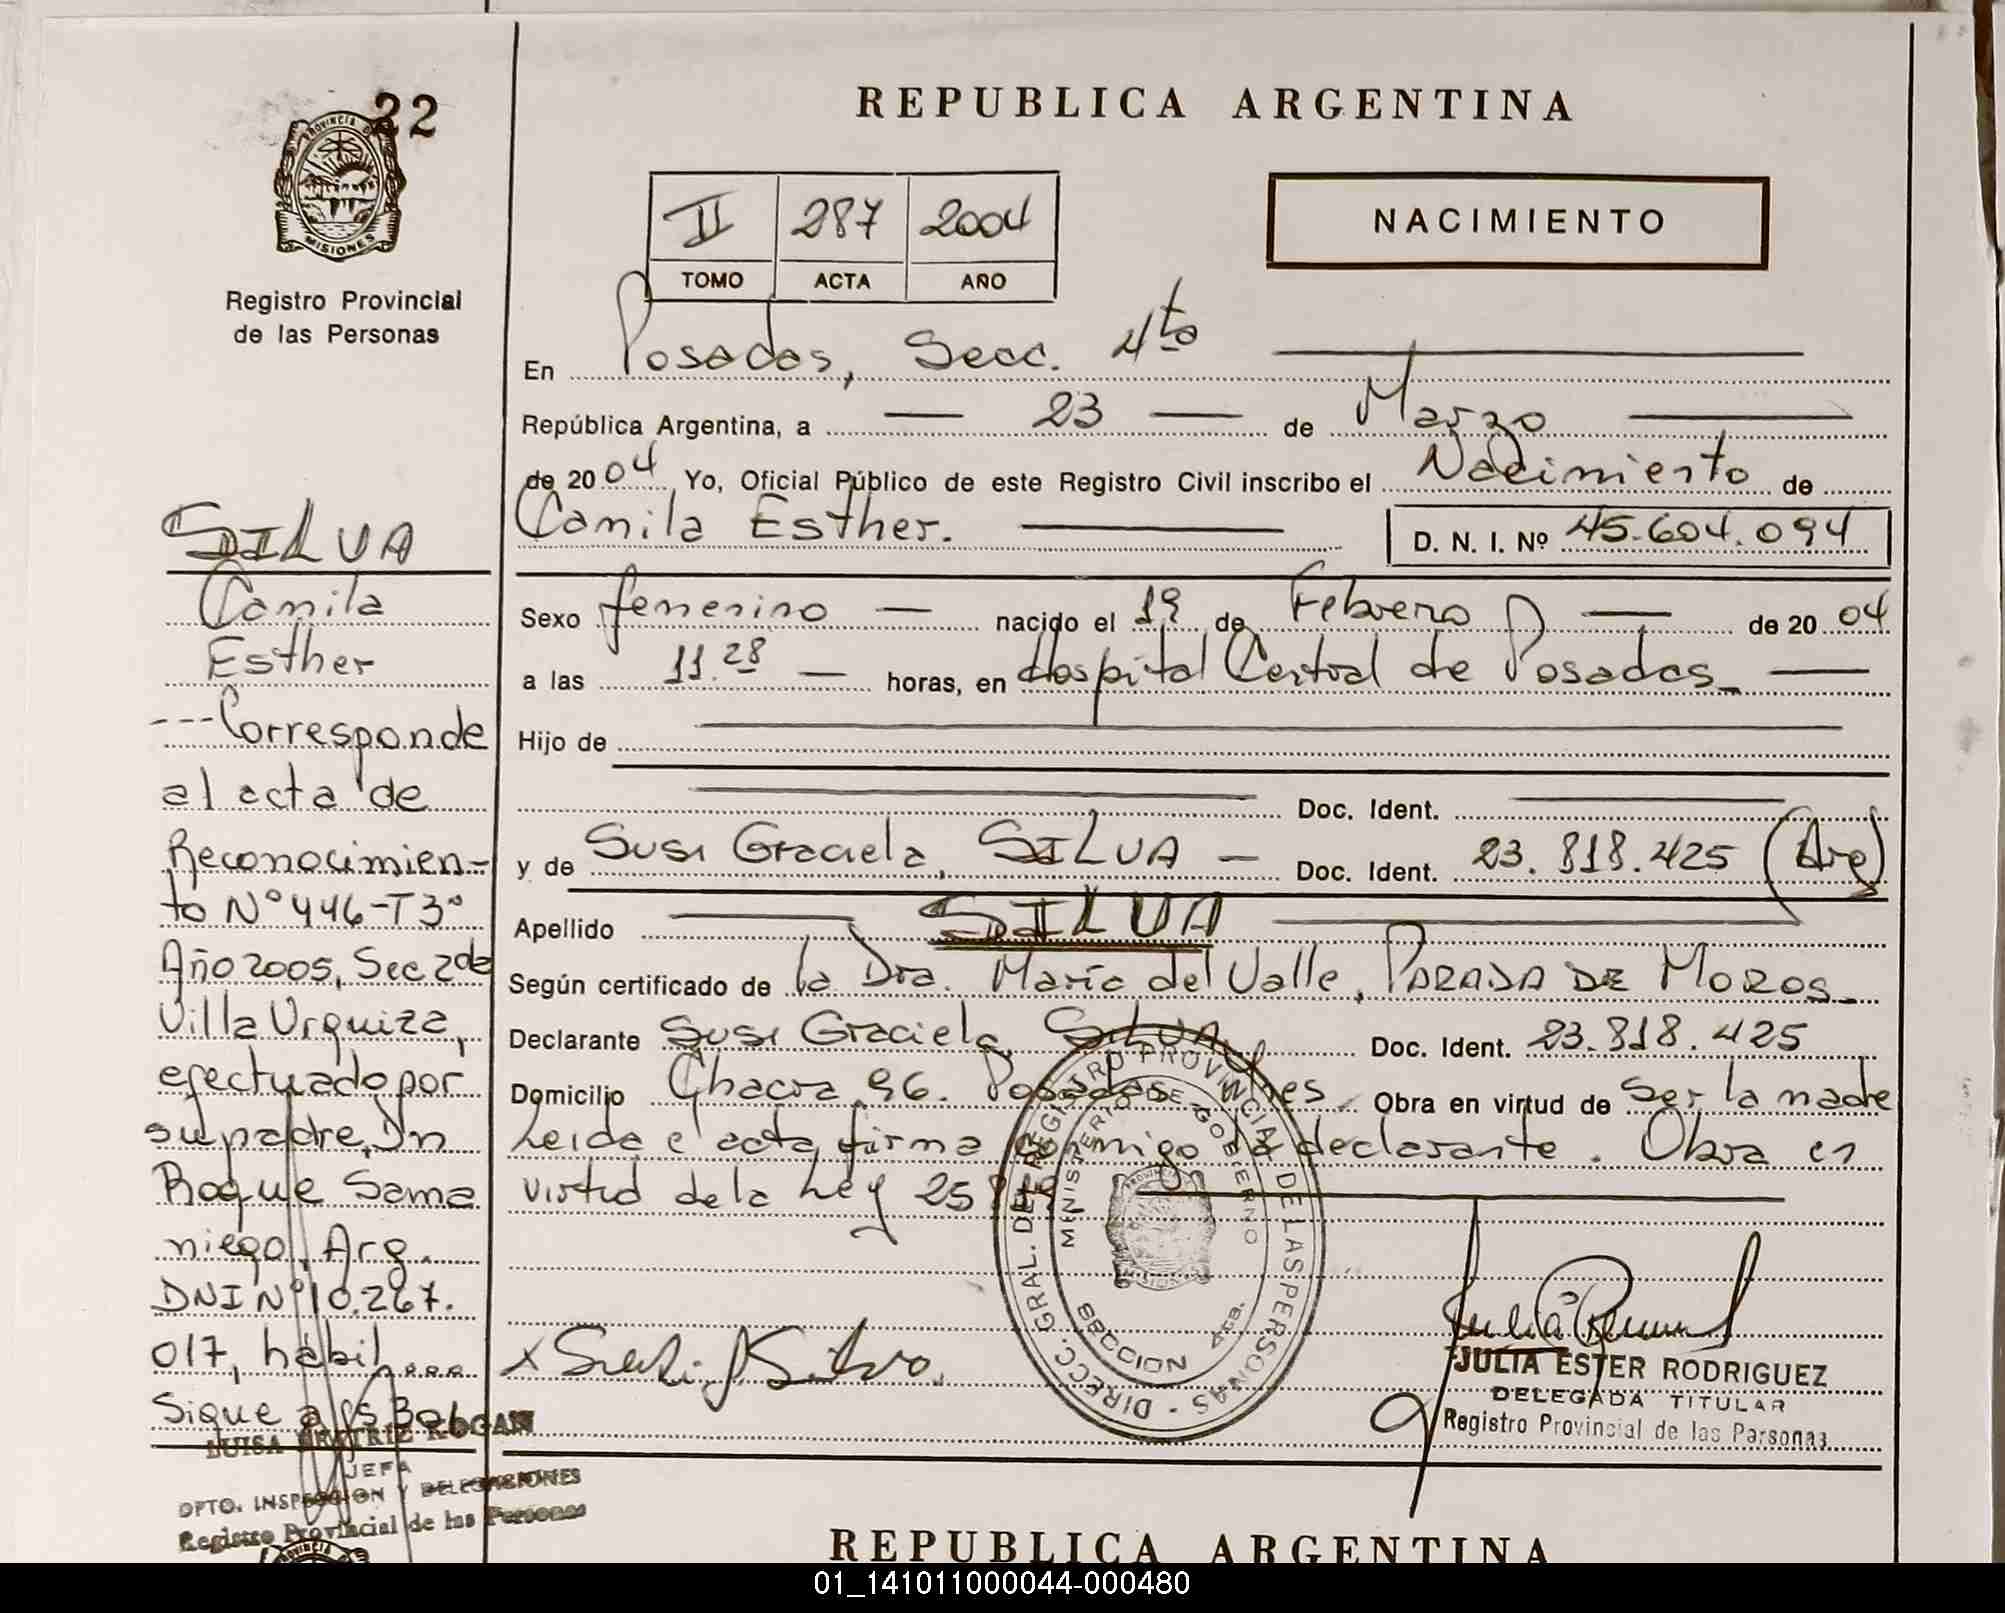 22
PROVINCIA DE
MISIONES
Registro Provincial
de las Personas
REPUBLICA ARGENTINA
II 287 2004
TOMO ACTA AÑO
NACIMIENTO
En Posadas, Secc. 4ta
República Argentina, a 23 de Marzo
de 2004 Yo, Oficial Público de este Registro Civil inscribo el Nacimiento de
Camila Esther.
D. N. I. Nº 45.604.094
Sexo femenino nacido el 19 de Febrero de 2004
a las 11.28 horas, en Hospital Central de Posadas
Hijo de
Doc. Ident.
y de Susi Graciela, SILVA Doc. Ident. 23.818.425 (Arg)
Apellido SILVA
Según certificado de la Dra. María del Valle, PARADA DE MOROS
Declarante Susi Graciela, SILVA Doc. Ident. 23.818.425
Domicilio Chacra 96. Posadas Mnes. Obra en virtud de ser la madre
Leida el acta firma conmigo la declarante. Obra en
virtud de la Ley 25
SILVA
Camila
Esther
---Corresponde
al acta de
Reconocimien-
to Nº 446-T3º
Año 2005, Sec 2da
Villa Urquiza,
efectuado por
su padre, Dn
Roque Sama
niego, Arg.
DNI Nº 10.267.
017, hábil
Sigue a fs
LUISA BEATRIZ ROGAN
JEFA
DPTO. INSPECCION Y DELEGACIONES
Registro Provincial de las Personas
DIRECC. GRAL. DEL REGISTRO PROVINCIAL DE LAS PERSONAS
MINISTERIO DE GOBIERNO
SECCION 4ta.
x Susi Silva.
JULIA ESTER RODRIGUEZ
DELEGADA TITULAR
Registro Provincial de las Personas
REPUBLICA ARGENTINA
01_141011000044-000480